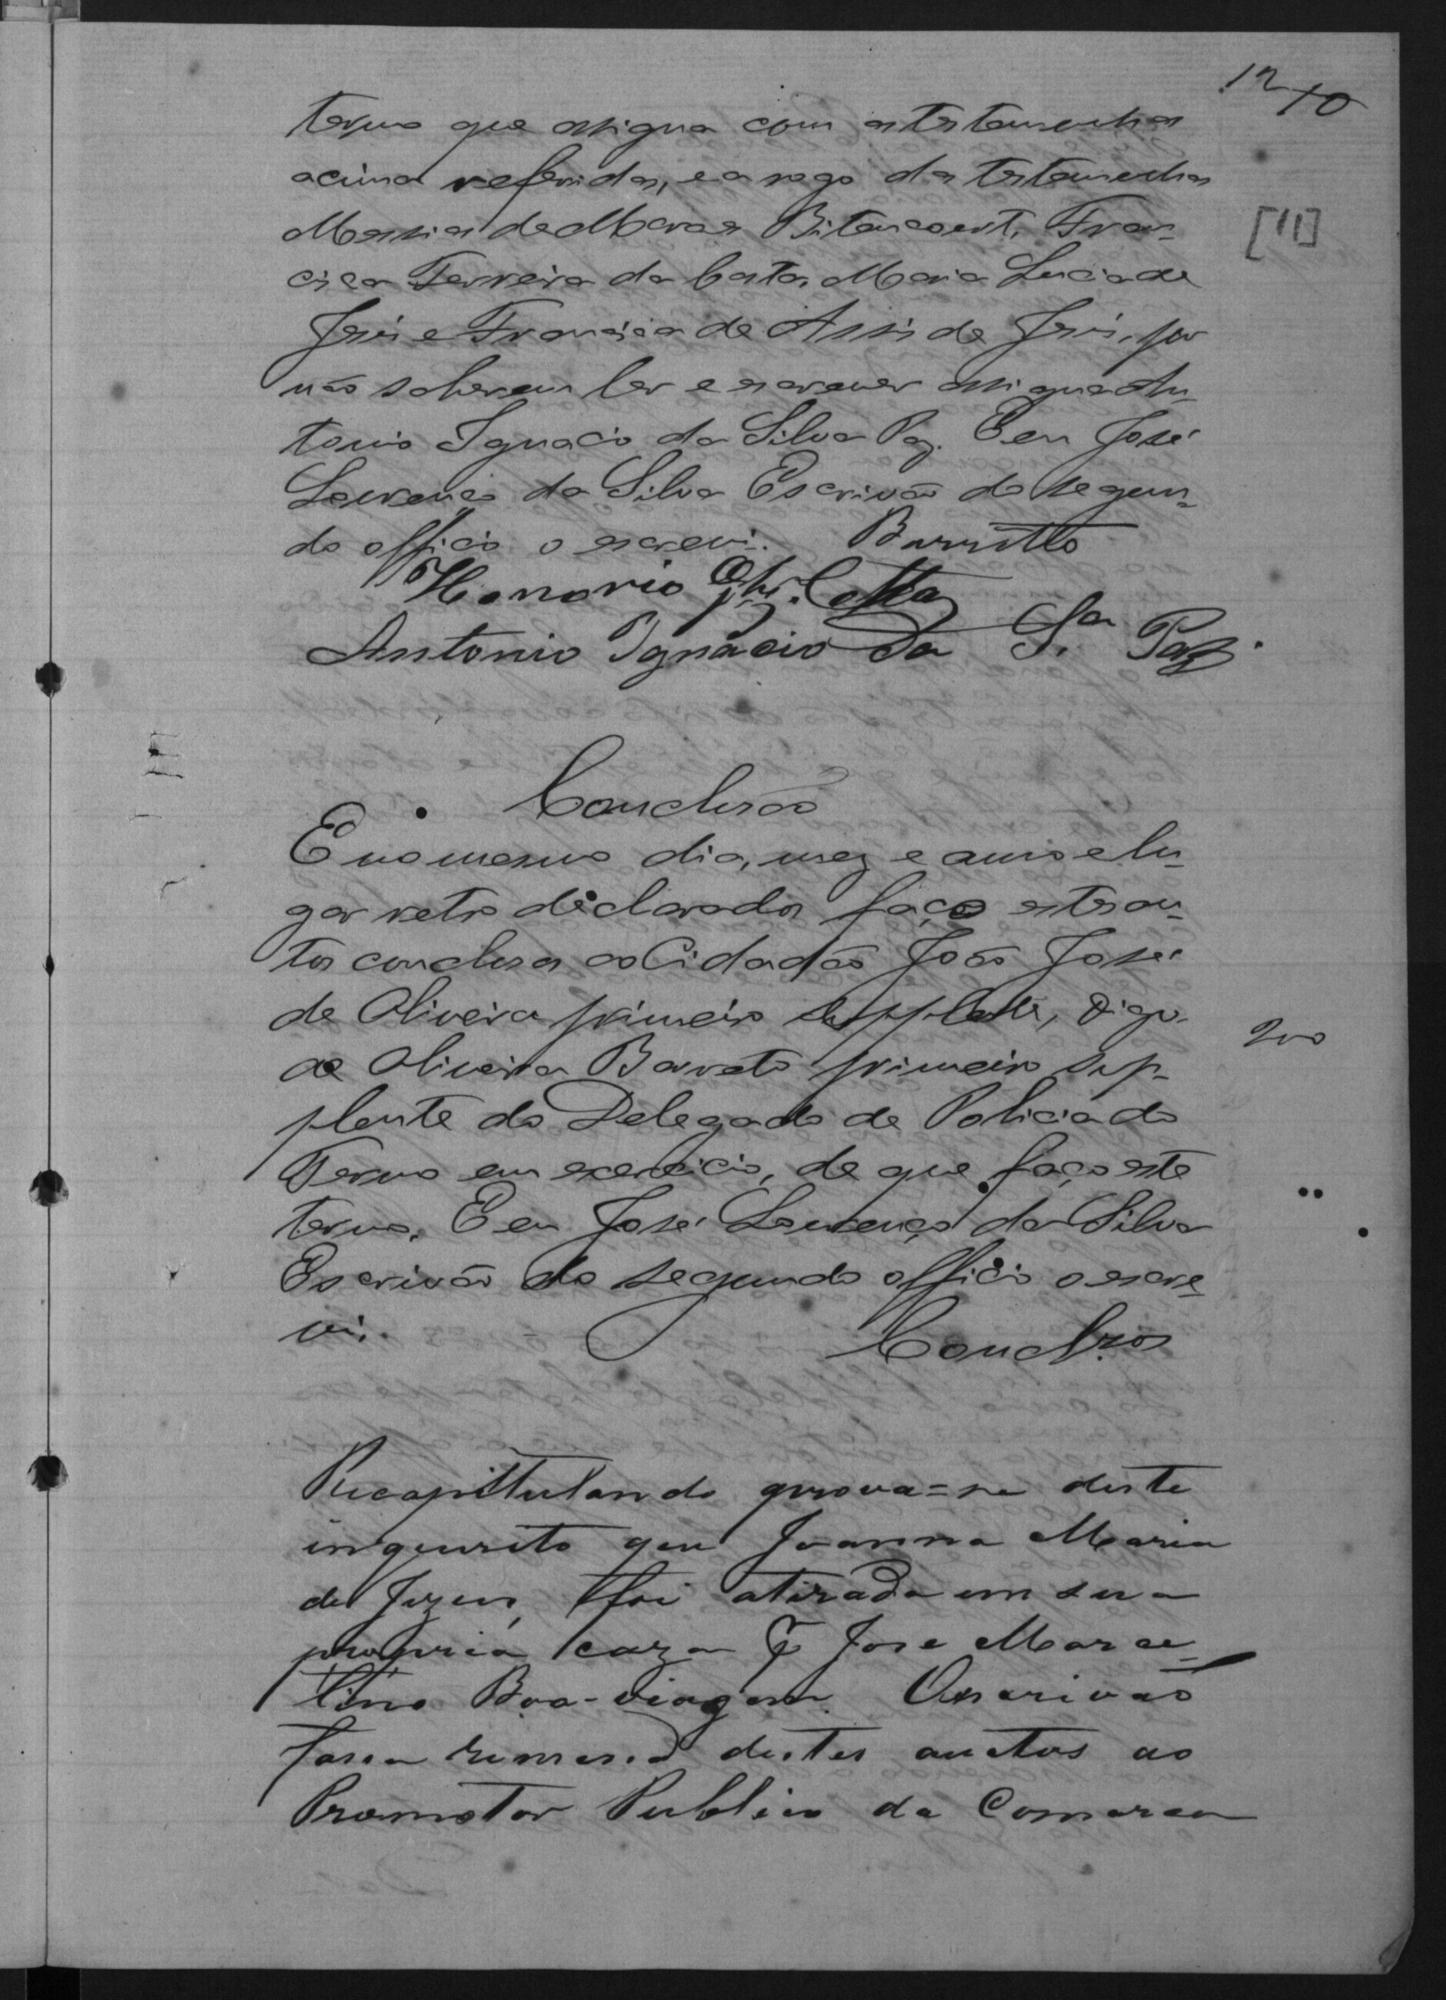 12 10
termo que assigna com as testemunhas
acima referidas, e a rogo das testemunhas
Messias de Moraes Bitancourt, Fran-
cisca Ferreira da Costa, Maria Lucia de
Jesus e Francisca de Assis de Jesus, por
não saberem ler e escrever assigna An-
tonio Ignacio da Silva Paz. E eu José
Lourenço da Silva Escrivão do segun-
do officio o escrevi. Barretto
Honorio Costa
Antonio Ignacio da Sa. Paz.
[11]
Conclusão
E no mesmo dia, mez e anno e lu-
gar retro declarados faço estes au-
tos conclusos ao Cidadão João José
de Oliveira primeiro supplente, digo
de Oliveira Barreto primeiro sup-
plente do Delegado de Policia do
Termo em exercicio, de que faço este
termo. E eu José Lourenço da Silva
Escrivão do segundo officio o escre-
vi.
200
Conclusos
Recapittulando prova=se deste
inquerito que Joanna Maria
de Jezus, foi atirada em sua
propria caza José Marce-
lino Boa-viagem. O escrivão
fassa remessa destes auctos ao
Promotor Publico da Comarca